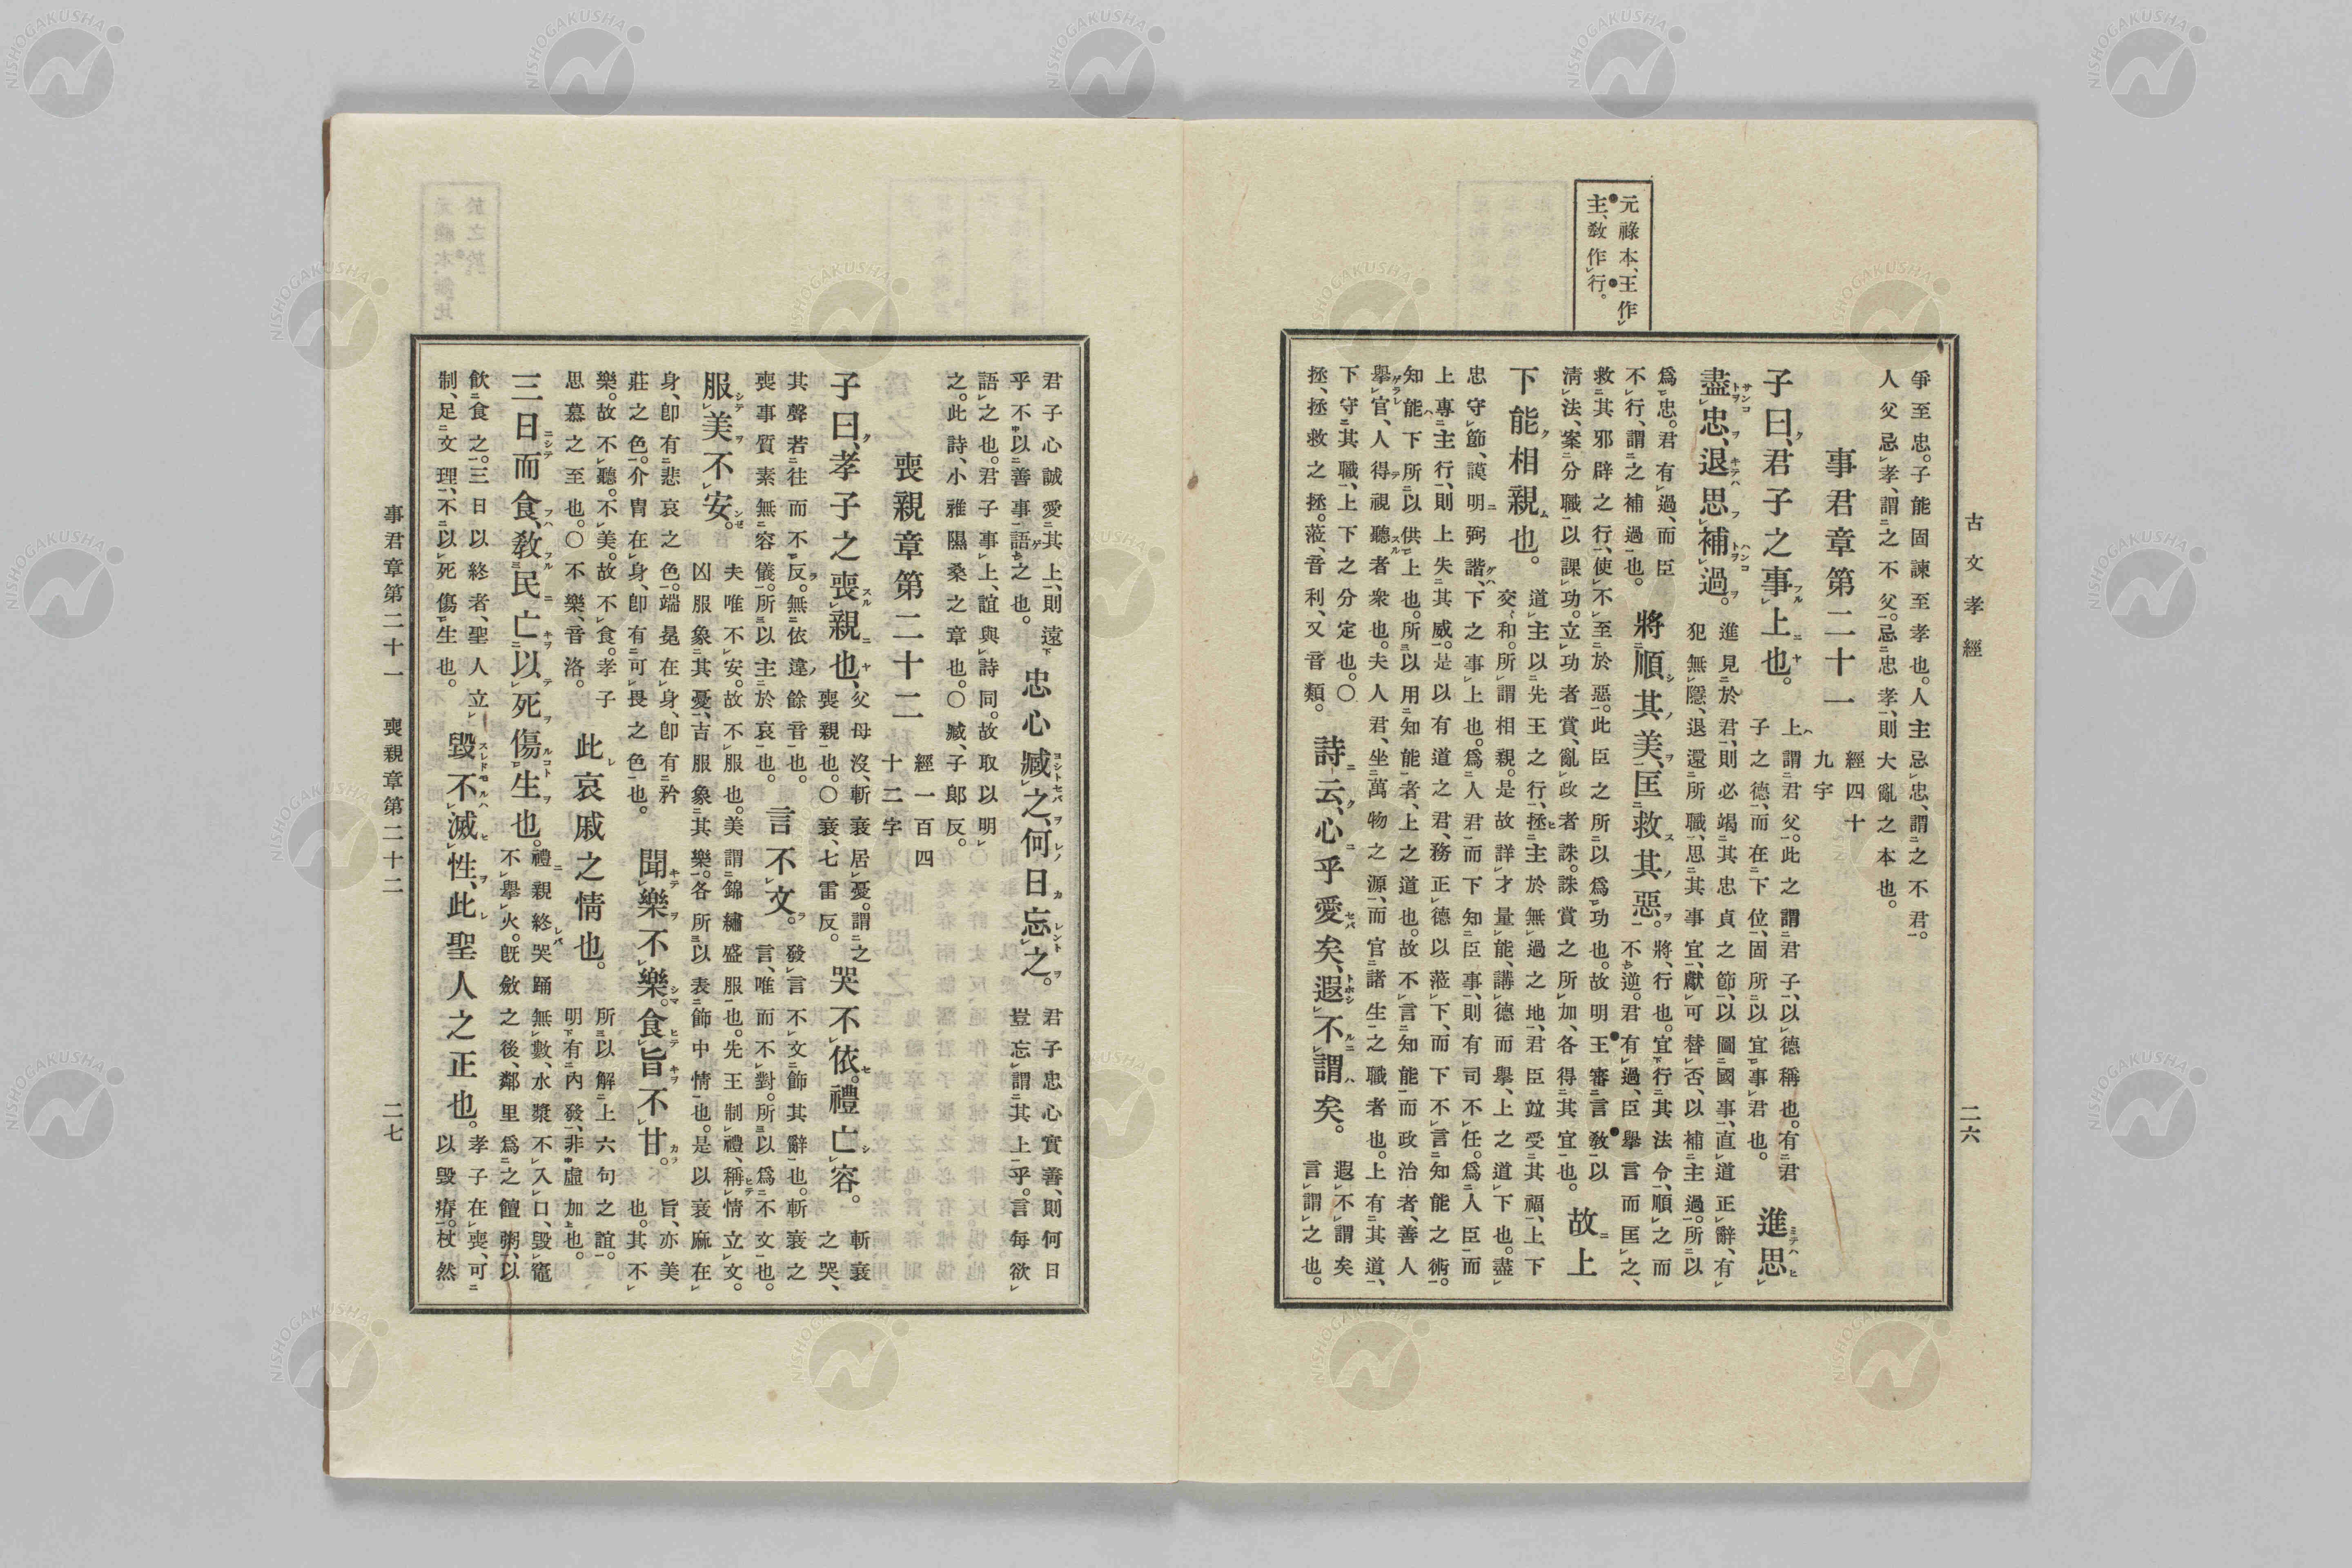 古文孝經
二六
元祿本、王作
主、敎作行。
爭至忠。子能固諫至孝也。人主忌忠、謂之不君。
人父忌孝、謂之不父。忌忠孝、則大亂之本也。
事君章第二十一
經四十
九字
子曰、君子之事上也。
上謂君父。此之謂君子、以德稱也。有君
子之德、而在下位、固所以宜事君也。
進思
盡忠、退思補過。
進見於君、則必竭其忠貞之節、以圖國事、直道正辭、有
犯無隱、退還所職、思其事宜、獻可替否、以補主過。所以
爲忠。君有過、而臣
不行、謂之補過也。
將順其美、匡救其惡。
將、行也。宜行其法令、順之而
不逆。君有過、臣擧言而匡之、
救其邪辟之行、使不至於惡。此臣之所以爲功也。故明王審言敎以
淸法、案分職以課功。立功者賞、亂政者誅。誅賞之所加、各得其宜也。
故上
下能相親也。
道主以先王之行、拯主於無過之地、君臣竝受其福、上下
交和。所謂相親。是故詳才量能、講德而擧、上之道下也。盡
忠守節、謨明弼諧、下之事上也。爲人君而下知臣事、則有司不任。爲人臣而
上專主行、則上失其威。是以有道之君、務正德以蒞下、而下不言知能之術。
知能下所以供上也。所以用知能者、上之道也。故不言知能而政治者、善人
擧官、人得視聽者衆也。夫人君、坐萬物之源、而官諸生之職者也。上有其道、
下守其職、上下之分定也。〇
拯、拯救之拯。蒞、音利、又音類。
詩云、心乎愛矣、遐不謂矣。
遐不謂矣
言謂之也。
君子心誠愛其上、則遠
乎不以善事語之也。
忠心臧之、何日忘之。
君子忠心實善、則何日
豈忘謂其上乎。言每欲
語之也。君子事上、誼與詩同。故取以明
之。此詩、小雅隰桑之章也。〇臧、子郎反。
喪親章第二十二
經一百四
十二字
子曰、孝子之喪親也、
父母沒、斬衰居憂。謂之
喪親也。〇衰、七雷反。
哭不依。禮亡容。
斬衰
之哭、
其聲若往而不反。無依違餘音也。
喪事質素無容儀。所以主於哀也。
言不文。
發言不文飾其辭也。斬衰之
言、唯而不對。所以爲不文也。
服美不安。
夫唯不安。故不服也。美謂錦繡盛服也。先王制禮、稱情立文。
凶服象其憂、吉服象其樂。各所以表飾中情也。是以衰麻在
身、卽有悲哀之色。端冕在身、卽有矜
莊之色。介冑在身、卽有可畏之色也。
聞樂不樂。食旨不甘。
旨、亦美
也。其不
樂。故不聽。不美。故不食。孝子
思慕之至也。〇不樂、音洛。
此哀戚之情也。
所以解上六句之誼。
明有內發、非虛加也。
三日而食、敎民亡以死傷生也。
禮親終哭踊無數、水漿不入口、毀竈
不擧火。旣斂之後、鄰里爲之饘粥、以
飮食之。三日以終者、聖人立
制、足文理、不以死傷生也。
毀不滅性、此聖人之正也。
孝子在喪、可
以毀瘠。杖然
事君章第二十一 喪親章第二十二
二七
NISHOGAKUSHA